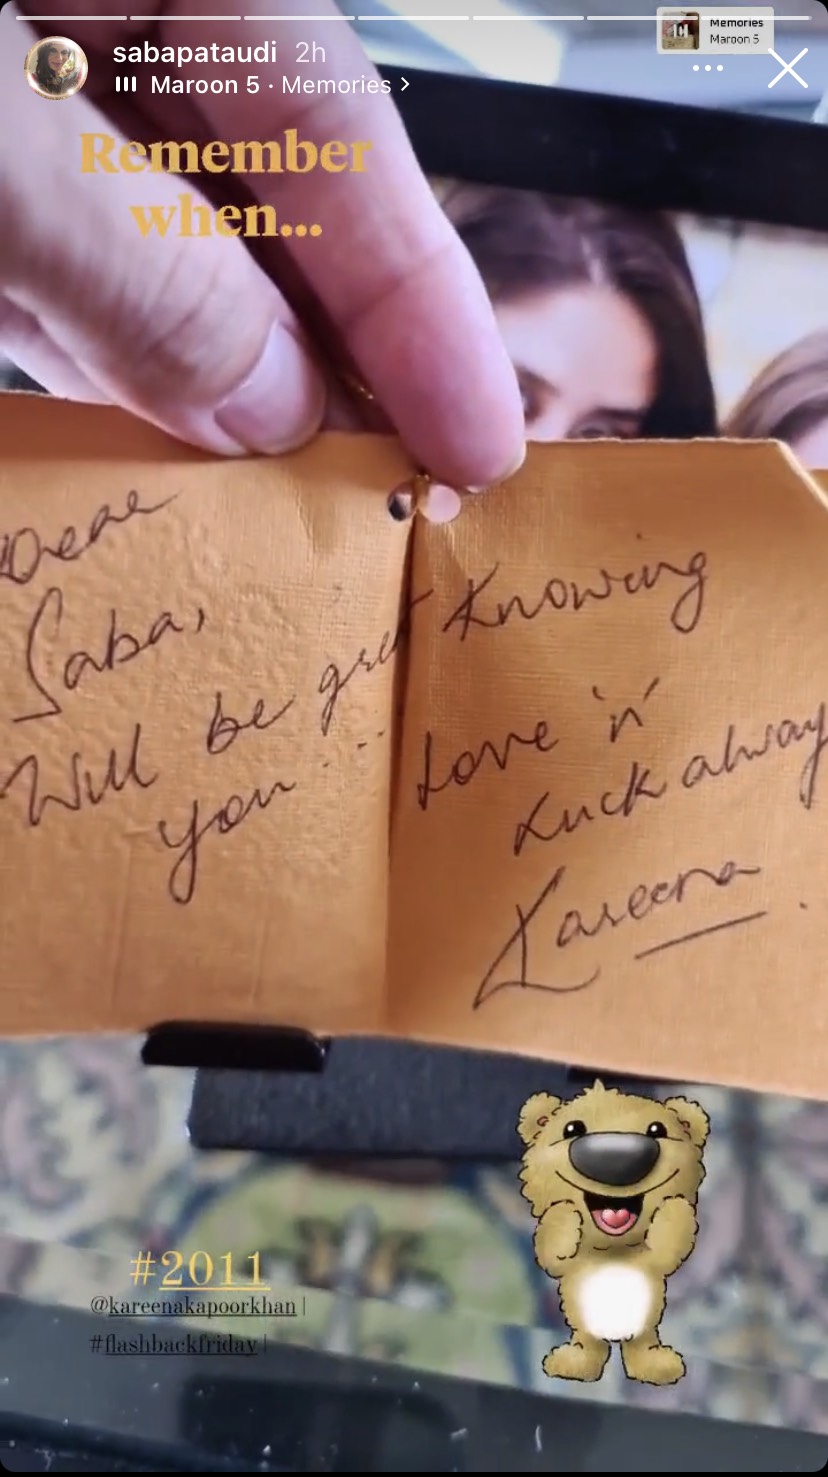 Memories
Maroon 5
sabapataudi 2h
Maroon 5 · Memories >
Remember
when...
Dear
Saba,
Will be gret knowing
you... Love 'n'
Luck always
Kareena
#2011
@kareenakapoorkhan |
#flashbackfriday |